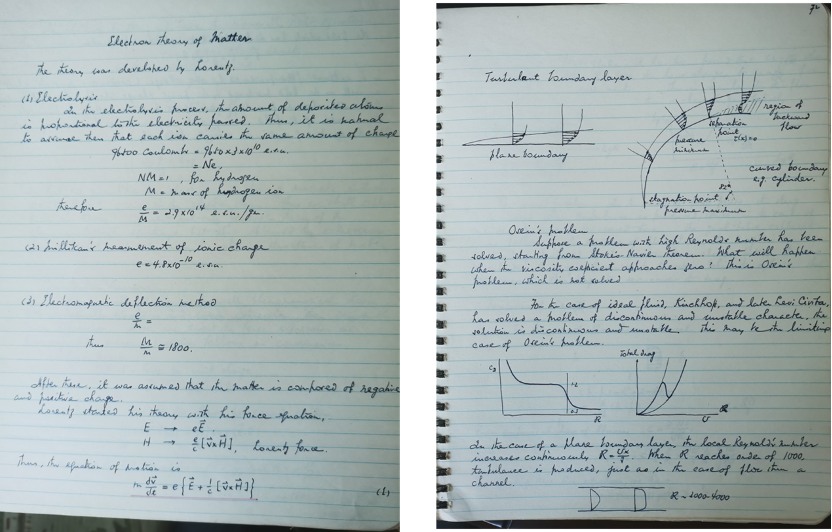 Electron theory of Matter
The theory was developed by Lorentz.
(1) Electrolysis
In the electrolysis process, the amount of deposited atoms
is proportional to the electricity passed. Thus, it is natural
to assume then that each ion carries the same amount of charge
96500 Coulombs = 9650 × 3 × 10¹⁰ e.s.u.
= Ne,
NM = 1, for hydrogen
M = mass of hydrogen ion
therefore e/M = 2.9 × 10¹⁴ e.s.u./gr.
(2) Millikan's measurement of ionic charge
e = 4.8 × 10⁻¹⁰ e.s.u.
(3) Electromagnetic deflection method
e/m =
thus M/m ≅ 1800.
After these, it was assumed that the matter is composed of negative
and positive charge.
Lorentz started his theory with his force equation,
E → eE⃗.
H → e/c [v⃗ × H⃗], Lorentz force.
Thus, the equation of motion is
m dv⃗/dt = e{E⃗ + 1/c [v⃗ × H⃗]}
(1)
72
Turbulent boundary layer
plane boundary
pressure
minimum
separation
point
region of
backward
flow
curved boundary
e.g. cylinder.
stagnation point
pressure maximum
Osein's problem
Suppose a problem with high Reynolds number has been
solved, starting from Stoke's Navier theorem. What will happen
when the viscosity coeficient approaches zero? This is Osein's
problem, which is not solved
For the case of ideal fluid, Kirchhop, and late Levi Civita,
has solved a problem of discontinuous and unstable character, the
solution is discontinuous and unstable. This may be the limiting
case of Osein's problem.
Total drag
R
U
In the case of a plane boundary layer, the local Reynold's number
increases continuously R = Ux/ν. When R reaches order of 1000,
turbulance is produced, just as in the case of flow thru a
channel.
R ~ 1000-4000